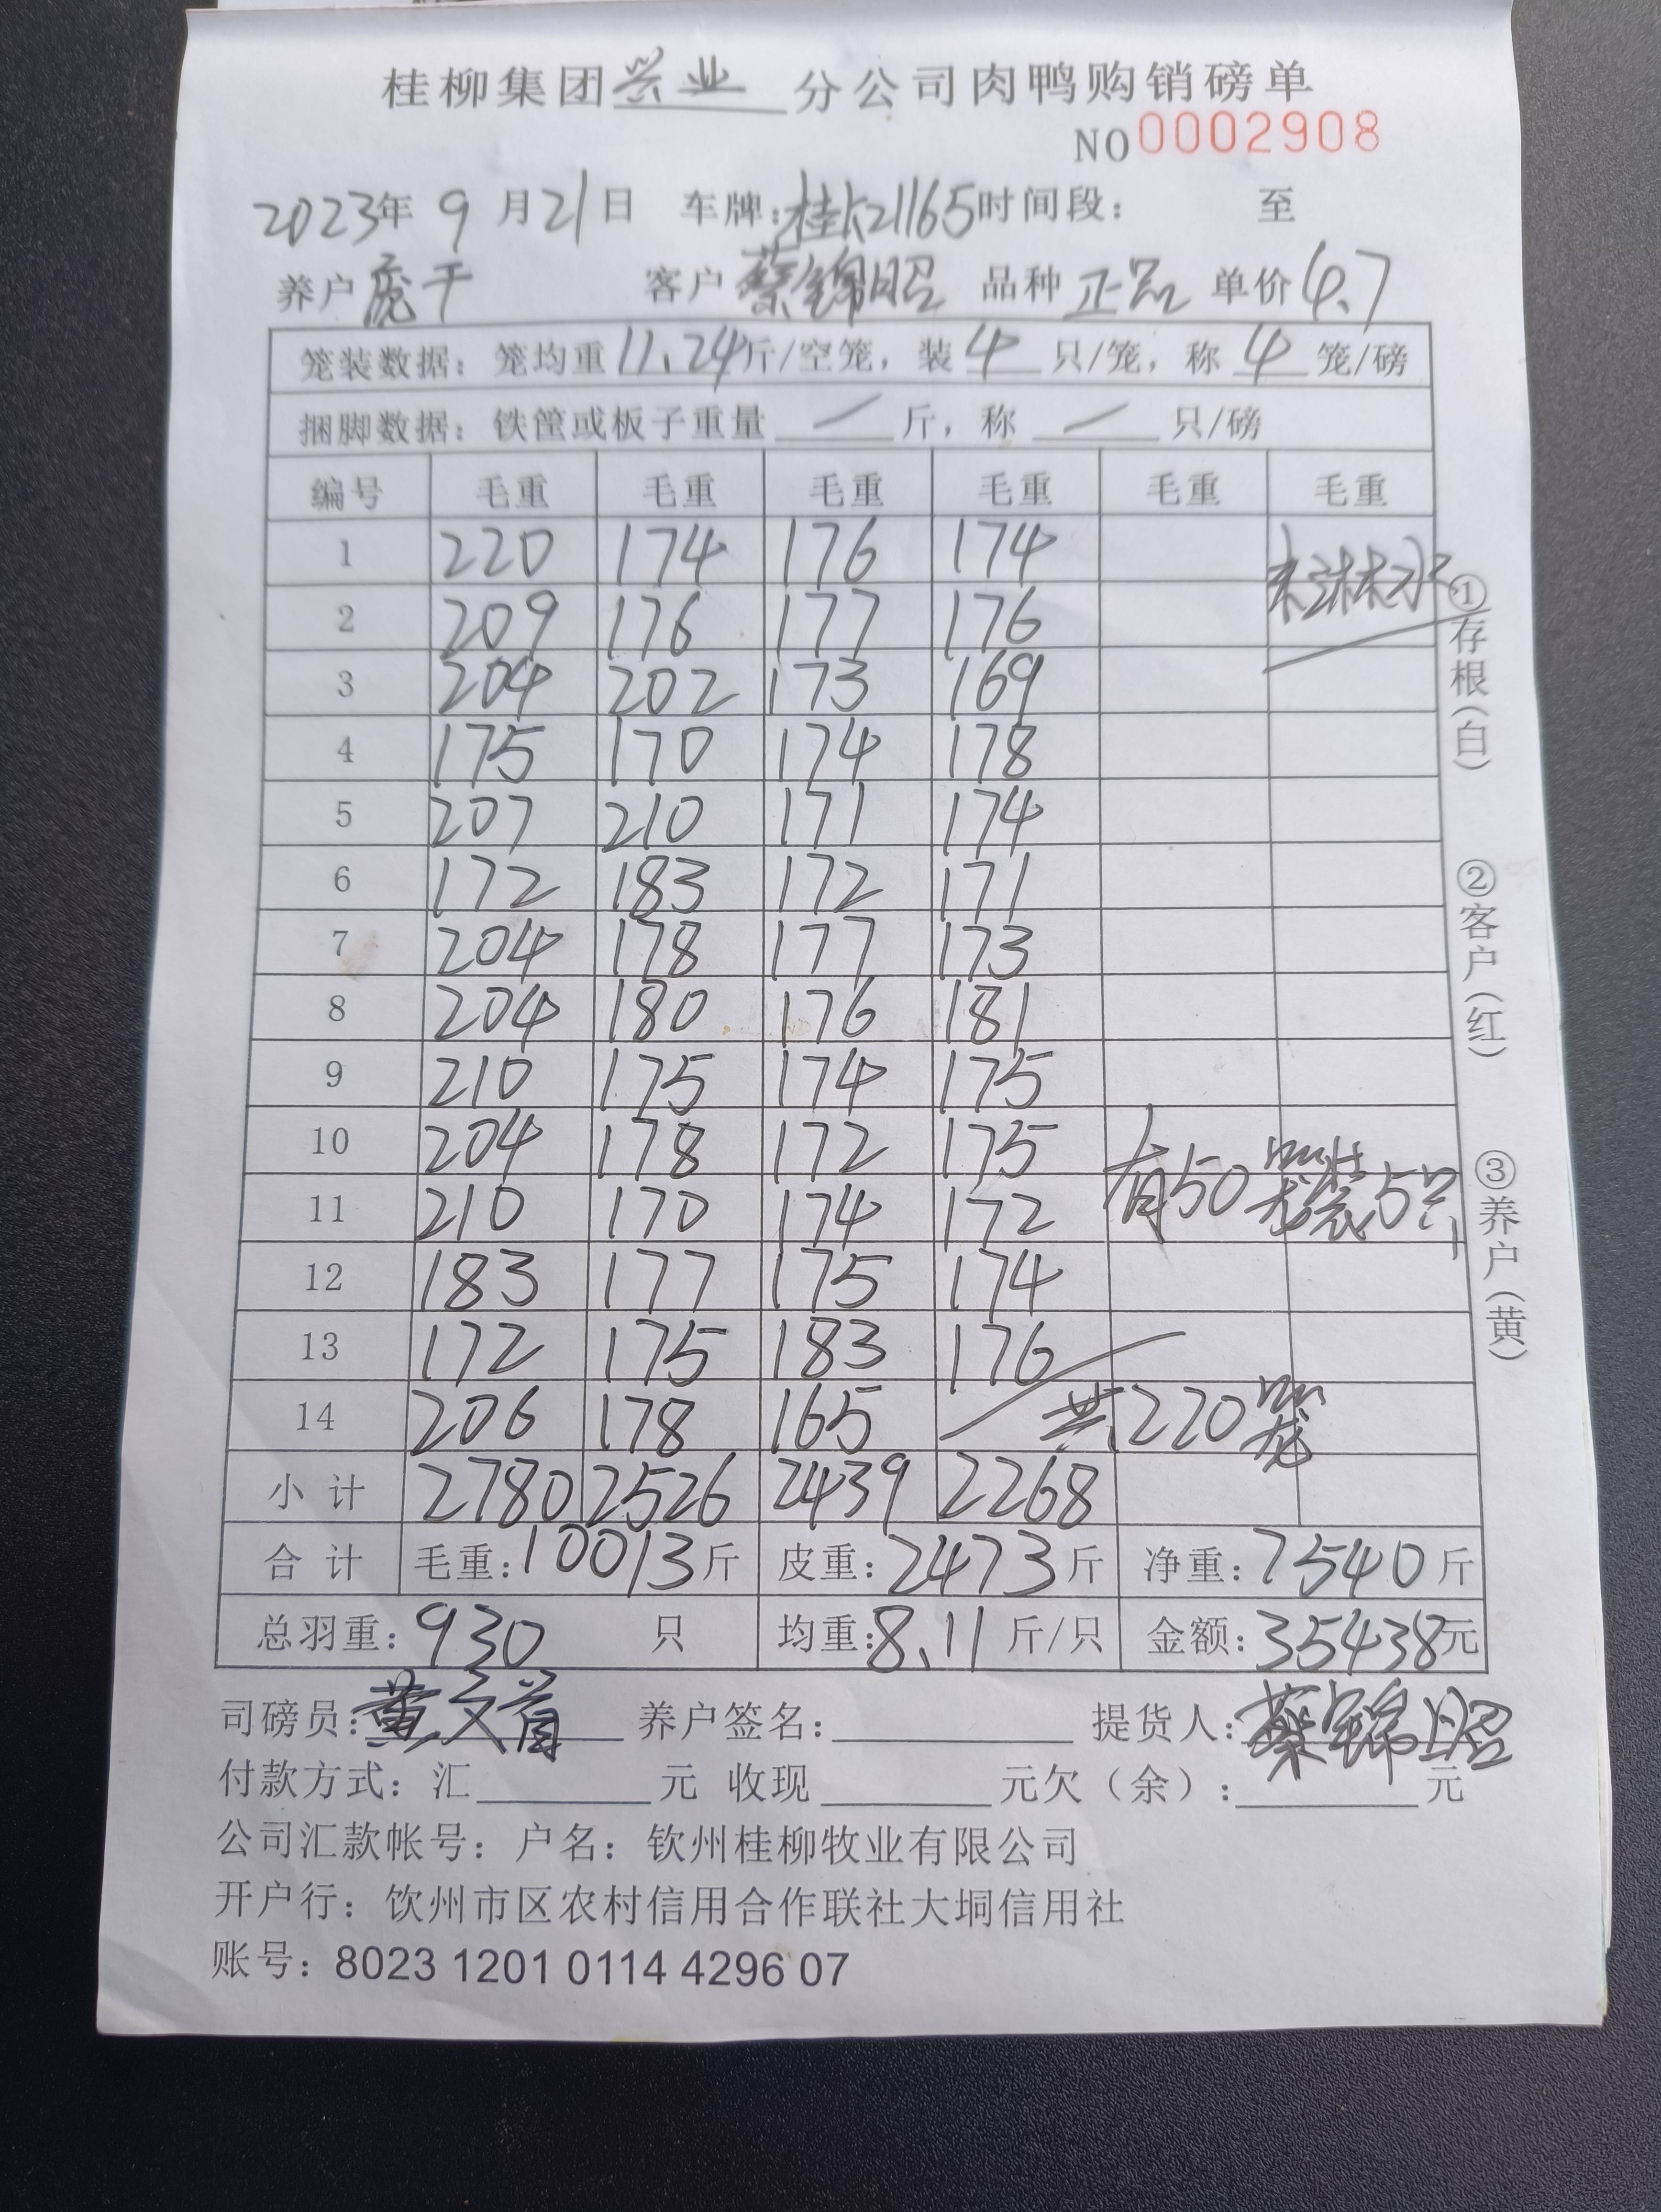 桂柳集团兴业分公司肉鸭购销磅单
NO 0002908
2023年 9 月 21 日 车牌: 桂K21165 时间段: 至
养户 庞千 客户 蔡锦昭 品种 正品 单价 4.7
笼装数据: 笼均重 11.24 斤/空笼, 装 4 只/笼, 称 4 笼/磅
捆脚数据: 铁筐或板子重量 / 斤, 称 / 只/磅
编号 毛重 毛重 毛重 毛重 毛重 毛重
1 220 174 176 174
2 209 176 177 176 未淋水
3 204 202 173 169
4 175 170 174 178
5 207 210 171 174
6 172 183 172 171
7 204 178 177 173
8 204 180 176 181
9 210 175 174 175
10 204 178 172 175
11 210 170 174 172 有50笼装5只
12 183 177 175 174
13 172 175 183 176
14 206 178 165 共220笼
小计 2780 2526 2439 2268
合计 毛重: 10013 斤 皮重: 2473 斤 净重: 7540 斤
总羽重: 930 只 均重: 8.11 斤/只 金额: 35438 元
司磅员: 黄文 养户签名: 提货人: 蔡锦昭
付款方式: 汇 元 收现 元欠(余): 元
公司汇款帐号: 户名: 钦州桂柳牧业有限公司
开户行: 饮州市区农村信用合作联社大垌信用社
账号: 8023 1201 0114 4296 07
①存根(白)
②客户(红)
③养户(黄)